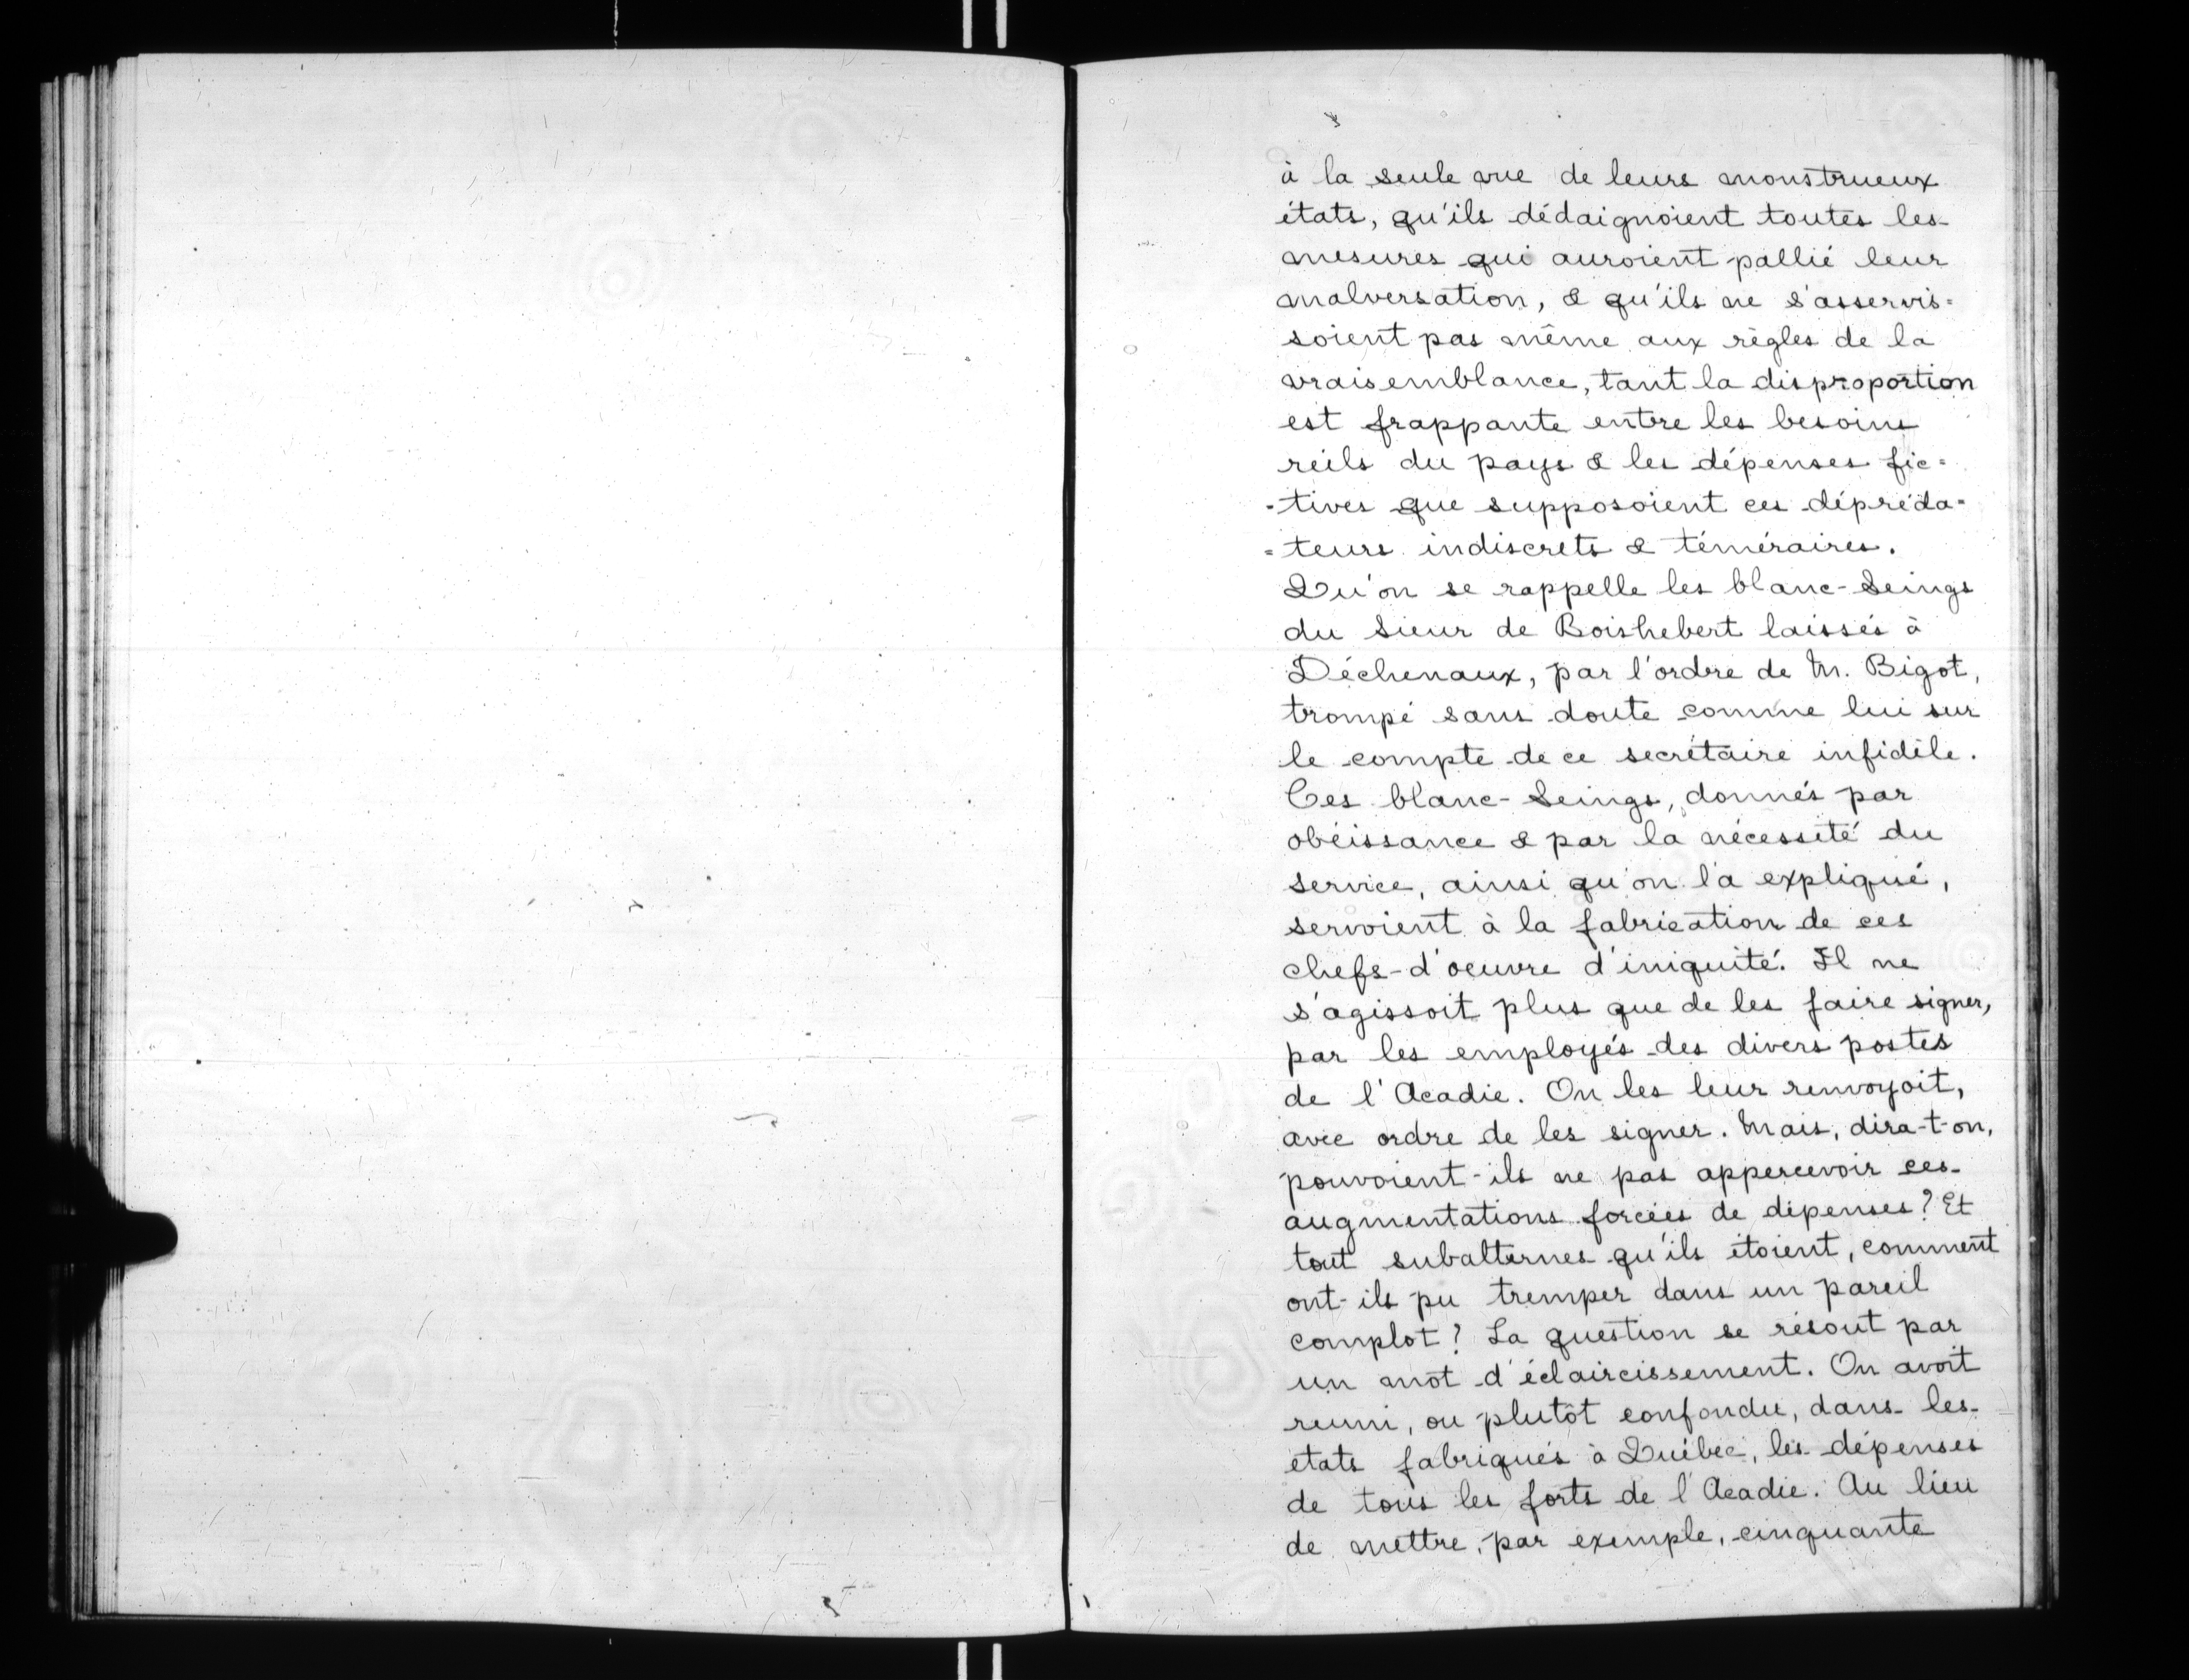 à la seule vue de leurs monstrueux
états, qu'ils dédaignoient toutes les
mesures qui auroient pallié leur
malversation, & qu'ils ne s'asservis=
soient pas même aux règles de la
vraisemblance, tant la disproportion
est frappante entre les besoins
réels du pays & les dépenses fic=
=tives que supposoient ces dépréda=
=teurs indiscrets & téméraires.
Qu'on se rappelle les blanc-Seings
du Sieur de Boishebert laissés à
Déchenaux, par l'ordre de M. Bigot,
trompé sans doute comme lui sur
le compte de ce secrétaire infidèle.
Ces blanc-Seings, donnés par
obéissance & par la nécessité du
service, ainsi qu'on l'a expliqué,
servoient à la fabrication de ces
chefs-d'oeuvre d'iniquité. Il ne
s'agissoit plus que de les faire signer,
par les employés des divers postes
de l'Acadie. On les leur renvoyoit,
avec ordre de les signer. Mais, dira-t-on,
pouvoient-ils ne pas appercevoir ces
augmentations forcées de dépenses? Et
tout subalternes qu'ils étoient, comment
ont-ils pu tremper dans un pareil
complot? La question se résout par
un mot d'éclaircissement. On avoit
reuni, ou plutôt confondu, dans les
etats fabriqués à Québec, les dépenses
de tous les forts de l'Acadie. Au lieu
de mettre, par exemple, cinquante